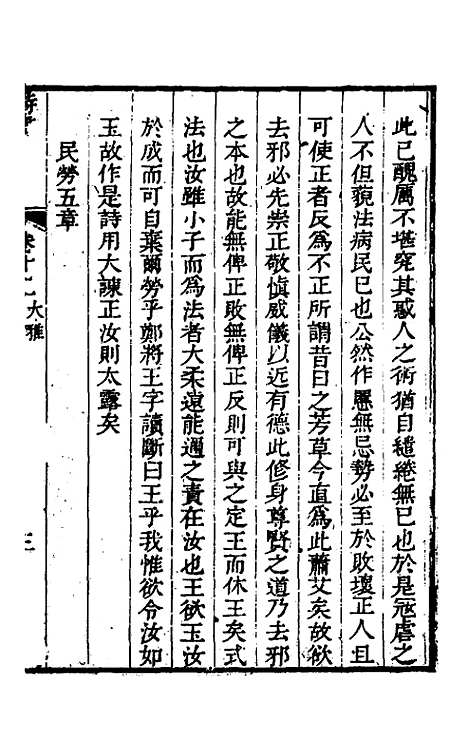 此已醜厲不堪究其惑人之術猶自繾綣無已也於是寇虐之
人不但藐法病民已也公然作慝無忌勢必至於敗壞正人且
可使正者反爲不正所謂昔日之芳草今直爲此蕭艾矣故欲
去邪必先崇正敬慎威儀以近有德此修身尊賢之道乃去邪
之本也故能無俾正敗無俾正反則可與之定王而休王矣式
法也汝雖小子而爲法者大柔遠能邇之責在汝也王欲玉汝
於成而可自棄爾勞乎鄭將王字讀斷曰王乎我惟欲令汝如
玉故作是詩用大諫正汝則太露矣
民勞五章
大雅
三